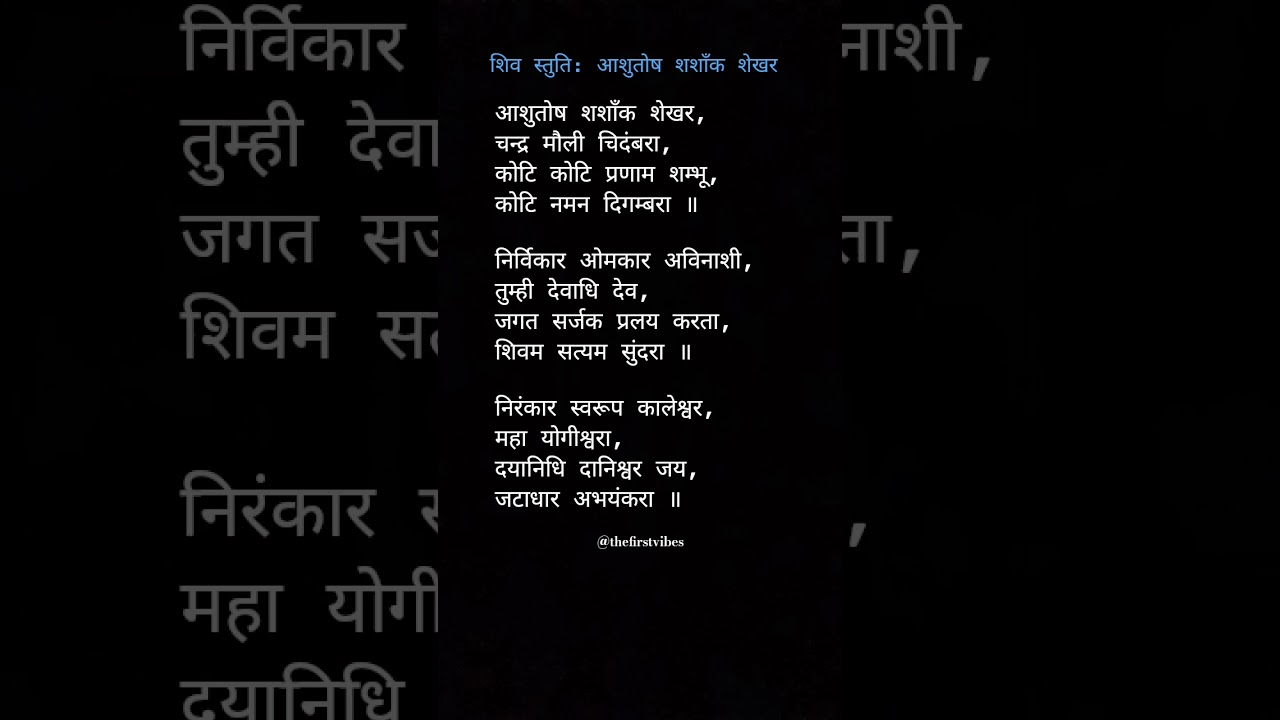 शिव स्तुति: आशुतोष शशाँक शेखर
आशुतोष शशाँक शेखर,
चन्द्र मौली चिदंबरा,
कोटि कोटि प्रणाम शम्भू,
कोटि नमन दिगम्बरा ॥
निर्विकार ओमकार अविनाशी,
तुम्ही देवाधि देव,
जगत सर्जक प्रलय करता,
शिवम सत्यम सुंदरा ॥
निरंकार स्वरूप कालेश्वर,
महा योगीश्वरा,
दयानिधि दानिश्वर जय,
जटाधार अभयंकरा ॥
@thefirstvibes